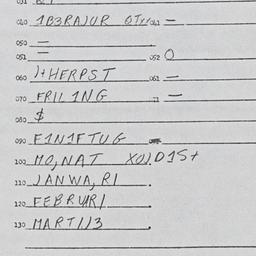 040 1B3RAJUR OT
050 =
051 052 O
060 )+HERPST 061 —
070 FRIL1NG 71 —
080 $
090 F1N1FTUG
100 MO,NAT XOJ.D1S+
110 JANWA,RI .
120 FEBRUARI .
130 MART1J3 .